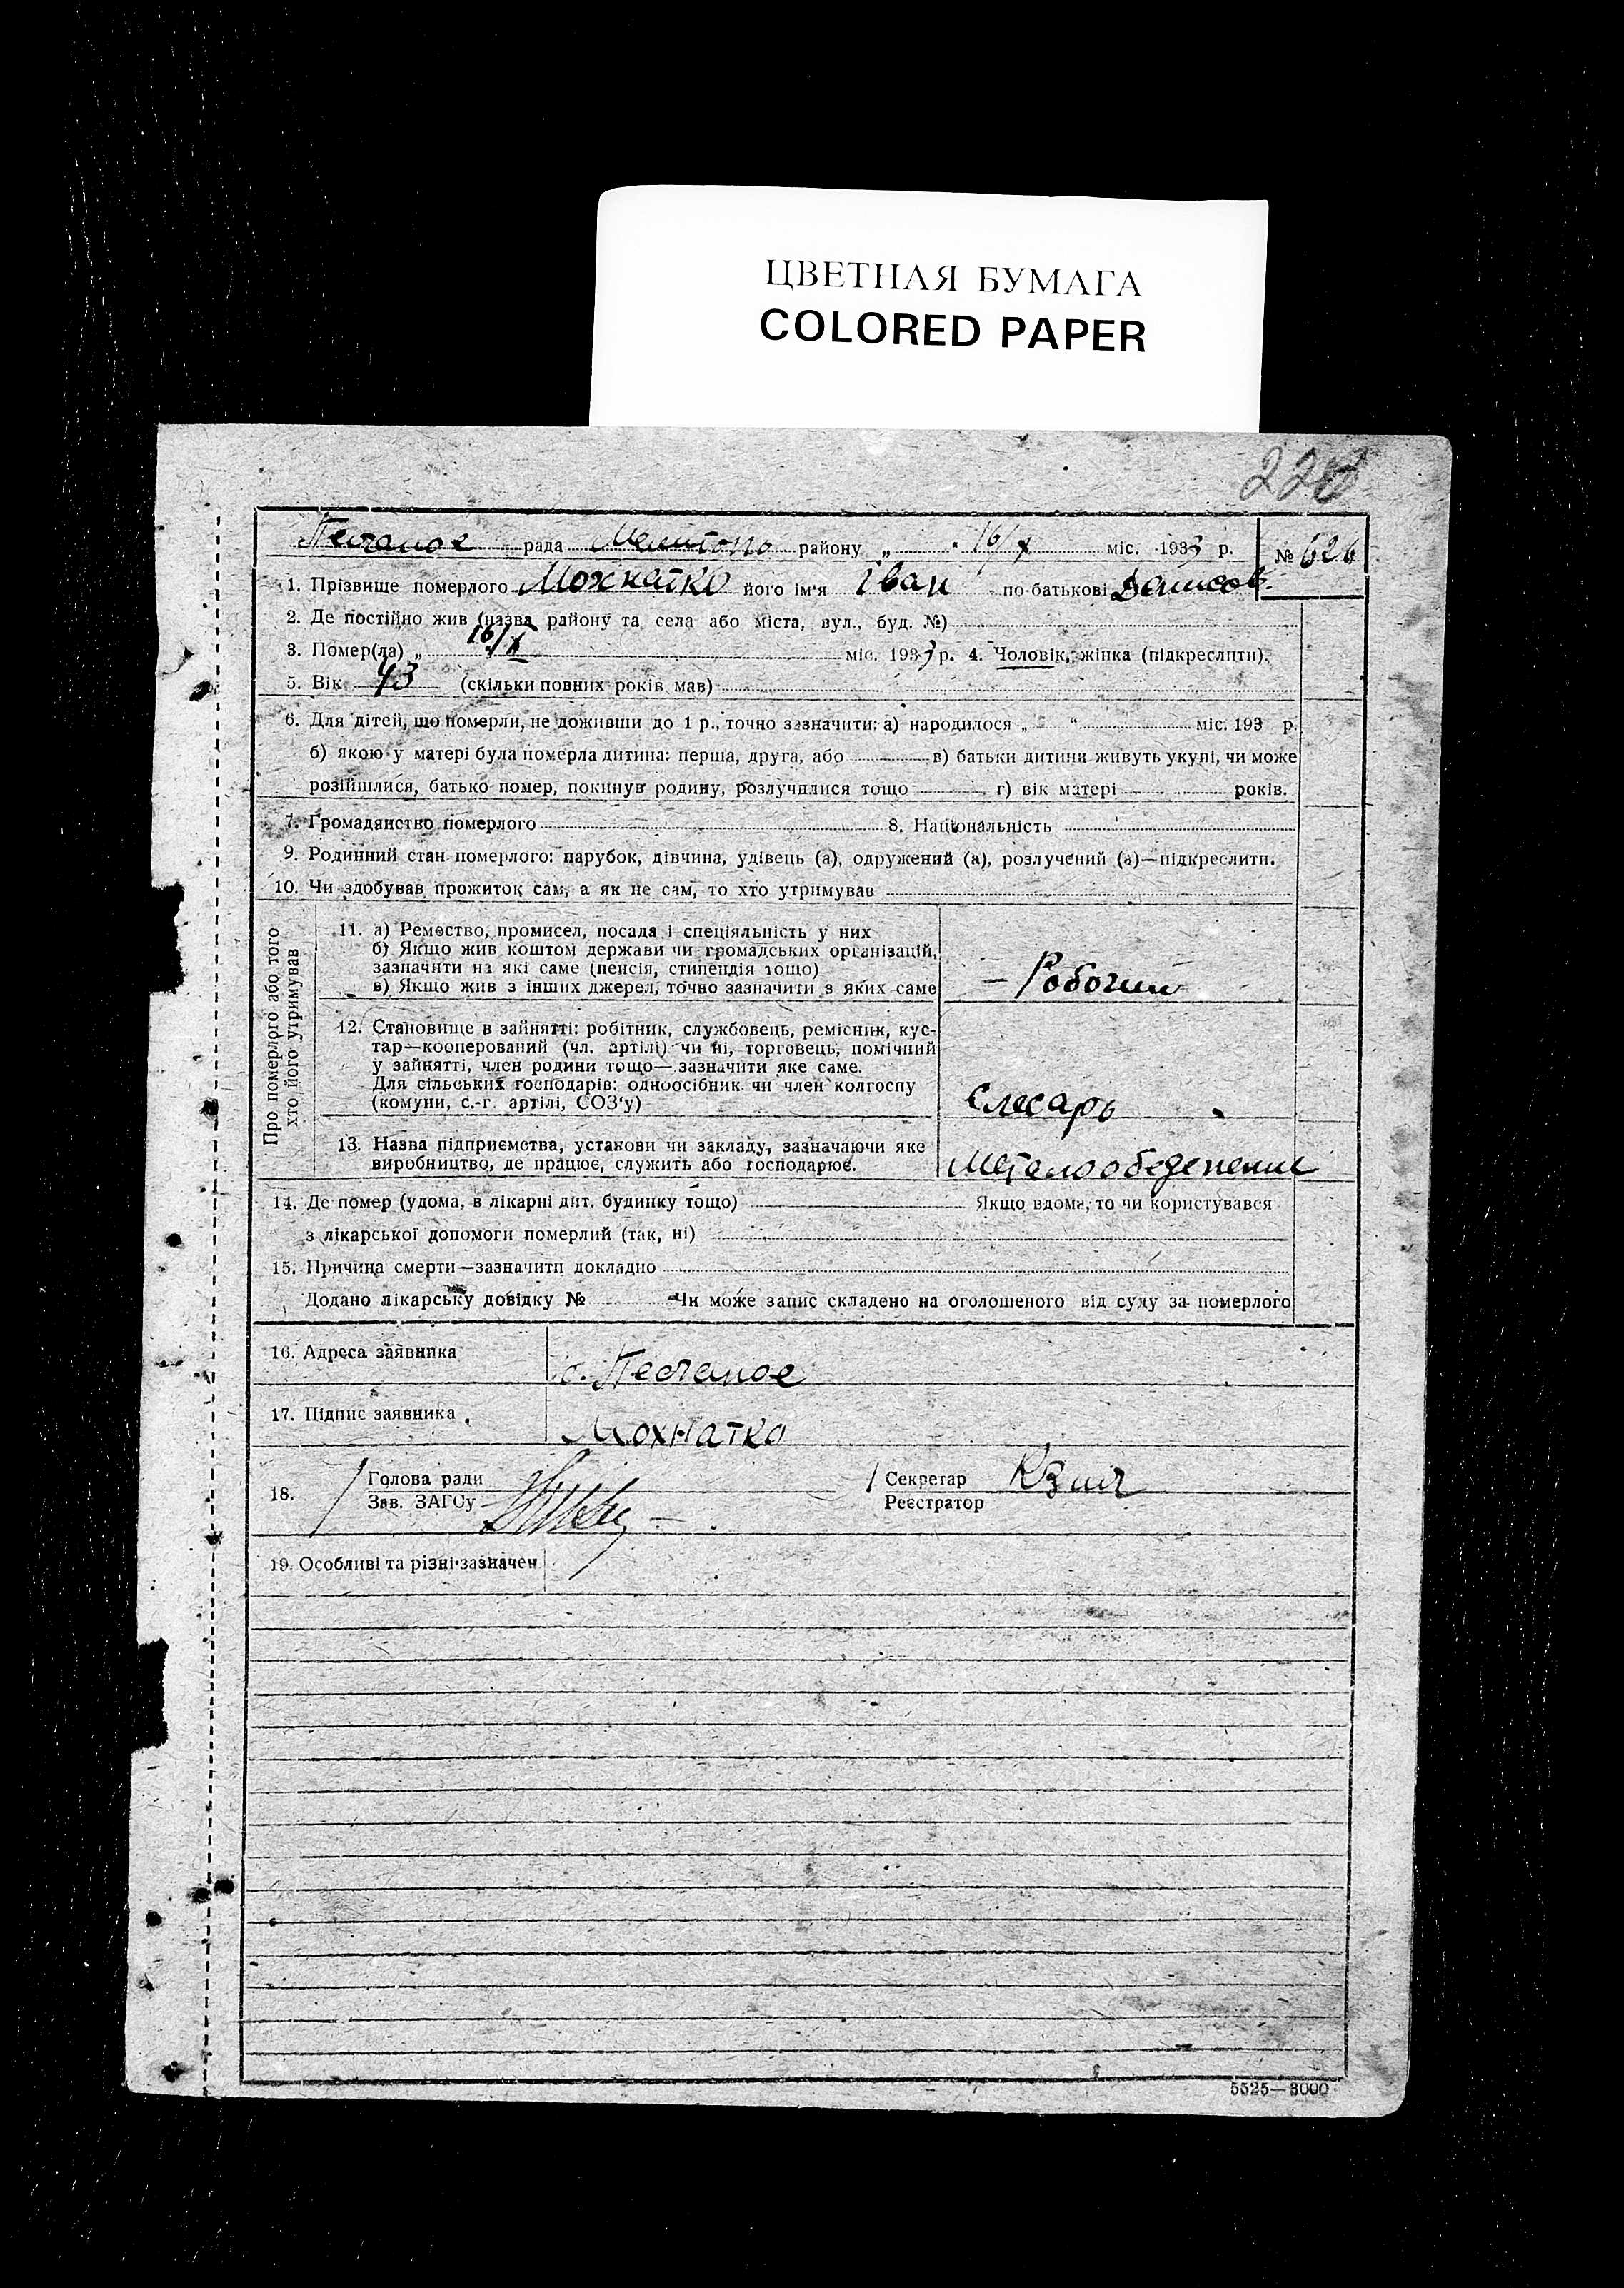 ЦВЕТНАЯ БУМАГА
COLORED PAPER
Песчаное рада Мелитоп району „ 16/X міс. 1933 р. № 626
1. Прізвище померлого Мохнатко його ім'я Іван по-батькові Денисов.
2. Де постійно жив (назва району та села або міста, вул., буд. №)
3. Помер(ла) „ 16/X міс. 1933 р. 4. Чоловік, жінка (підкреслити).
5. Вік 43 (скільки повних років мав)
6. Для дітей, що померли, не доживши до 1 р., точно зазначити: а) народилося „ “ міс. 193 р.
б) якою у матері була померла дитина: перша, друга, або в) батьки дитини живуть укупі, чи може
розійшлися, батько помер, покинув родину, розлучилися тощо г) вік матері років.
7. Громадянство померлого 8. Національність
9. Родинний стан померлого: парубок, дівчина, удівець (а), одружений (а), розлучений (а)—підкреслити.
10. Чи здобував прожиток сам, а як не сам, то хто утримував
Про померлого або того
хто його утримував
11. а) Ремество, промисел, посада і спеціяльність у них
б) Якщо жив коштом держави чи громадських організацій,
зазначити на які саме (пенсія, стипендія тощо)
в) Якщо жив з інших джерел, точно зазначити з яких саме
– Робочий
12. Становище в зайнятті: робітник, службовець, ремісник, кус-
тар—кооперований (чл. артілі) чи ні, торговець, помічний
у зайнятті, член родини тощо—зазначити яке саме.
Для сільських господарів: одноосібник чи член колгоспу
(комуни, с.-г. артілі, СОЗ'у)
Слесарь
13. Назва підприємства, установи чи закладу, зазначаючи яке
виробництво, де працює, служить або господарює.
14. Де помер (удома, в лікарні дит. будинку тощо) Якщо вдома, то чи користувався
з лікарської допомоги померлий (так, ні)
15. Причина смерти—зазначити докладно
Додано лікарську довідку № Чи може запис складено на оголошеного від суду за померлого
16. Адреса заявника с. Песчаное
17. Підпис заявника Мохнатко
18. Голова ради Секретар
Зав. ЗАГСу Реєстратор
19. Особливі та різні зазначен
5525—8000